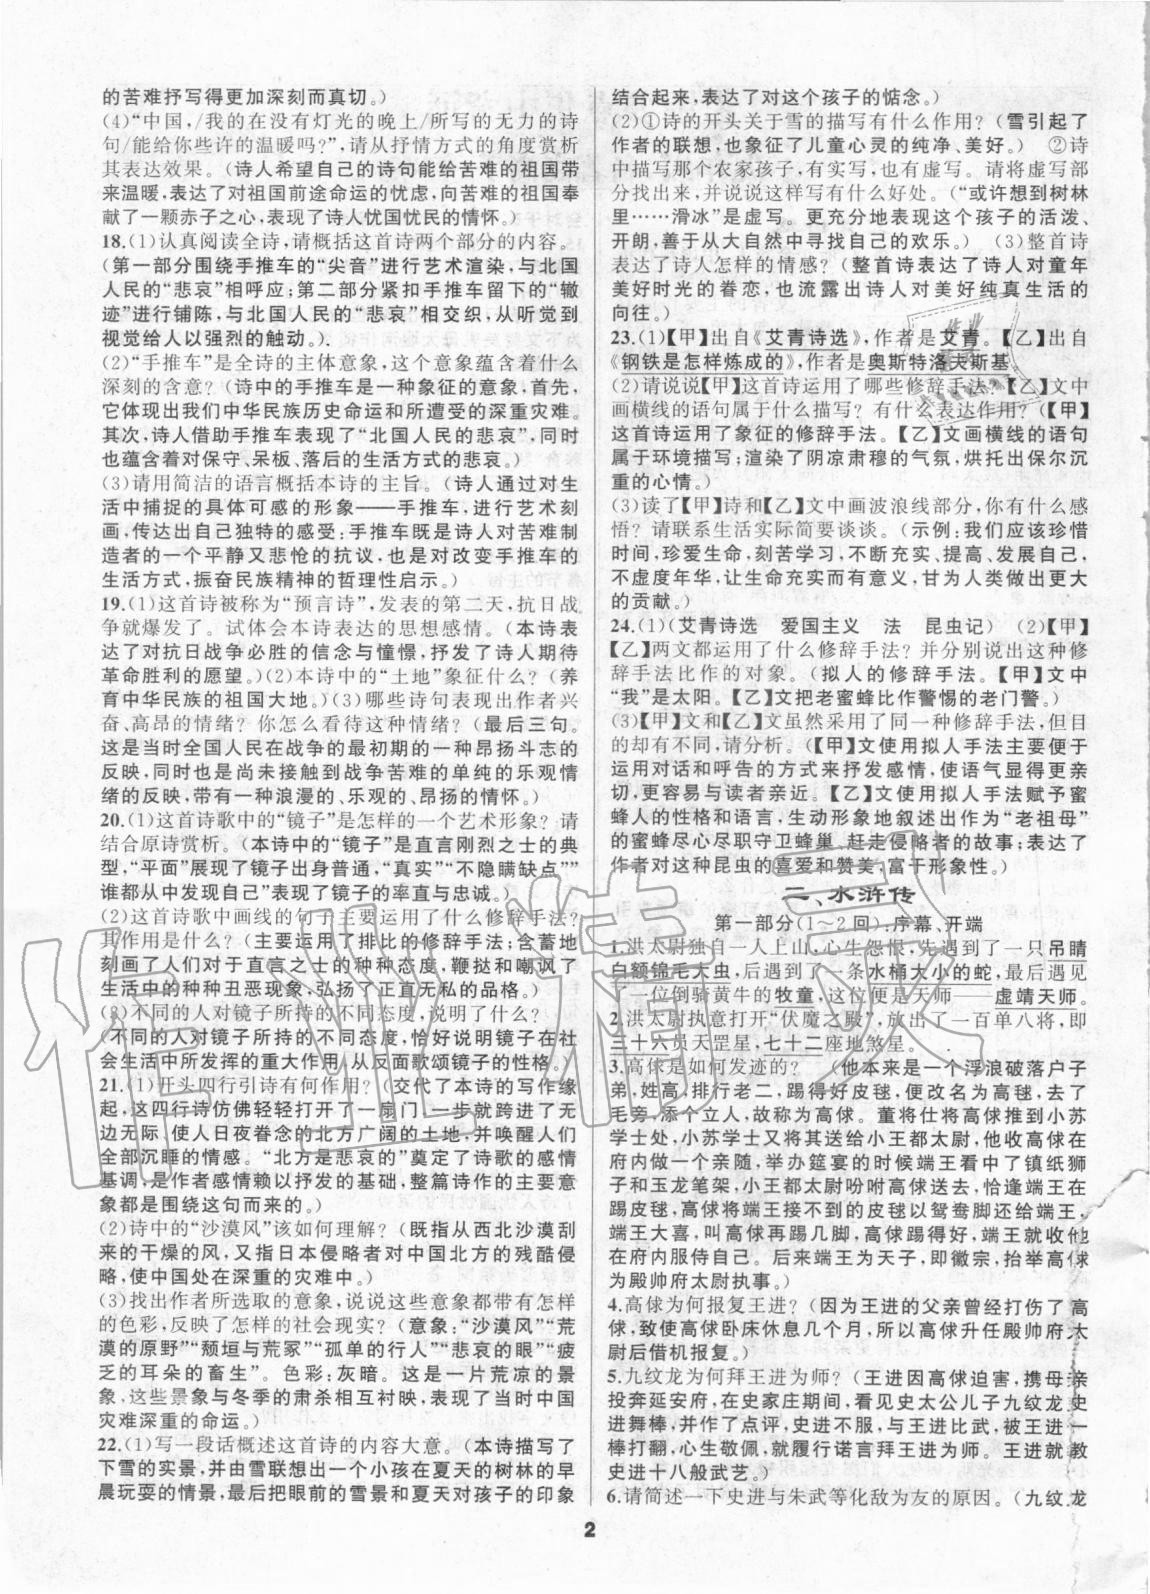 的苦难抒写得更加深刻而真切。)
(4)“中国,/我的在没有灯光的晚上/所写的无力的诗
句/能给你些许的温暖吗?”,请从抒情方式的角度赏析
其表达效果。(诗人希望自己的诗句能给苦难的祖国带
来温暖,表达了对祖国前途命运的忧虑,向苦难的祖国奉
献了一颗赤子之心,表现了诗人忧国忧民的情怀。)
18.(1)认真阅读全诗,请概括这首诗两个部分的内容。
(第一部分围绕手推车的“尖音”进行艺术渲染,与北国
人民的“悲哀”相呼应;第二部分紧扣手推车留下的“辙
迹”进行铺陈,与北国人民的“悲哀”相交织,从听觉到
视觉给人以强烈的触动。)
(2)“手推车”是全诗的主体意象,这个意象蕴含着什么
深刻的含意?(诗中的手推车是一种象征的意象,首先,
它体现出我们中华民族历史命运和所遭受的深重灾难。
其次,诗人借助手推车表现了“北国人民的悲哀”,同时
也蕴含着对保守、呆板、落后的生活方式的悲哀。)
(3)请用简洁的语言概括本诗的主旨。(诗人通过对生
活中捕捉的具体可感的形象——手推车,进行艺术刻
画,传达出自己独特的感受:手推车既是诗人对苦难制
造者的一个平静又悲怆的抗议,也是对改变手推车的
生活方式,振奋民族精神的哲理性启示。)
19.(1)这首诗被称为“预言诗”,发表的第二天,抗日战
争就爆发了。试体会本诗表达的思想感情。(本诗表
达了对抗日战争必胜的信念与憧憬,抒发了诗人期待
革命胜利的愿望。)(2)本诗中的“土地”象征什么?(养
育中华民族的祖国大地。)(3)哪些诗句表现出作者兴
奋、高昂的情绪?你怎么看待这种情绪?(最后三句。
这是当时全国人民在战争的最初期的一种昂扬斗志的
反映,同时也是尚未接触到战争苦难的单纯的乐观情
绪的反映,带有一种浪漫的、乐观的、昂扬的情怀。)
20.(1)这首诗歌中的“镜子”是怎样的一个艺术形象?请
结合原诗赏析。(本诗中的“镜子”是直言刚烈之士的典
型,“平面”展现了镜子出身普通,“真实”“不隐瞒缺点”“
谁都从中发现自己”表现了镜子的率直与忠诚。
(2)这首诗歌中画线的句子主要运用了哪些修辞手法?
其作用是什么?(主要运用了排比的修辞手法;含蓄地
刻画了人们对于直言之士的种种表现,鞭挞和嘲讽了
生活中的种种丑恶现象,弘扬了正直无私的品格。)
(3)不同的人对镜子所持的不同态度,说明了什么?
(不同的人对镜子所持的不同态度,恰好说明镜子在社
会生活中所发挥的重大作用,从反面歌颂镜子的性格。)
21.(1)开头四行引诗有何作用?(交代了本诗的写作缘
起,这四行诗仿佛轻轻打开了一扇门,一步就跨进了无
边无际、使人日夜眷念的北方广阔的土地,并唤醒人们
全部沉睡的情感。“北方是悲哀的”奠定了诗歌的感情
基调,是作者感情赖以抒发的基础,整篇诗作的主要意
象都是围绕这句而来的。)
(2)诗中的“沙漠风”该如何理解?(既指从西北沙漠刮
来的干燥的风,又指日本侵略者对中国北方的残酷侵
略,使中国处在深重的灾难中。)
(3)找出作者所选取的意象,说说这些意象都带有怎样
的色彩,反映了怎样的社会现实?(意象:“沙漠风”“荒
漠的原野”“颓垣与荒冢”“孤单的行人”“悲哀的眼”“疲
乏的耳朵的畜生”。色彩:灰暗。这是一片荒凉的景
象,这些景象与冬季的肃杀相互衬映,表现了当时中国
灾难深重的命运。)
22.(1)写一段话概述这首诗的内容大意。(本诗描写了
下雪的实景,并由雪联想出一个小孩在夏天的树林的早
晨玩耍的情景,最后把眼前的雪景和夏天对孩子的印象
结合起来,表达了对这个孩子的惦念。)
(2)①诗的开头关于雪的描写有什么作用?(雪引起了
作者的联想,也象征了儿童心灵的纯净、美好。)②诗
中描写的那个农家孩子,有实写,也有虚写。请将虚写部
分找出来,并说说这样写有什么好处。(“或许想到树林
里……滑冰”是虚写。更充分地表现这个孩子的活泼、
开朗,善于从大自然中寻找自己的欢乐。)(3)整首诗
表达了诗人怎样的情感?(整首诗表达了诗人对童年
美好时光的眷恋,也流露出诗人对美好纯真生活的
向往。)
23.(1)【甲】出自《艾青诗选》,作者是艾青。【乙】出自
《钢铁是怎样炼成的》,作者是奥斯特洛夫斯基。
(2)请说说【甲】这首诗运用了哪些修辞手法?【乙】文中
画横线的语句属于什么描写?有什么表达作用?(【甲】
这首诗运用了象征的修辞手法。【乙】文画横线的语句
属于环境描写;渲染了阴凉肃穆的气氛,烘托出保尔沉
重的心情。)
(3)读了【甲】诗和【乙】文中画波浪线部分,你有什么感
悟?请联系生活实际简要谈谈。(示例:我们应该珍惜
时间,珍爱生命,刻苦学习,不断充实、提高、发展自己,
不虚度年华,让生命充实而有意义,甘为人类做出更大
的贡献。)
24.(1)(艾青诗选 爱国主义 法 昆虫记)(2)【甲】
【乙】两文都运用了什么修辞手法?并分别说出这种修
辞手法比作的对象。(拟人的修辞手法。【甲】文中
“我”是太阳。【乙】文把老蜜蜂比作警惕的老门警。)
(3)【甲】文和【乙】文虽然采用了同一种修辞手法,但目
的却有不同,请分析。(【甲】文使用拟人手法主要便于
运用对话和呼告的方式来抒发感情,使语气显得更亲
切,更容易与读者亲近。【乙】文使用拟人手法赋予蜜
蜂人的性格和语言,生动形象地叙述出作为“老祖母”
的蜜蜂尽心尽职守卫蜂巢、赶走侵略者的故事;表达了
作者对这种昆虫的喜爱和赞美,富于形象性。)
二、水浒传
第一部分(1~2回):序幕、开端
1.洪太尉独自一人上山,心生怨恨,先遇到了一只吊睛
白额锦毛大虫,后遇到了一条水桶大小的蛇,最后遇见
了一位倒骑黄牛的牧童,这位便是天师——虚靖天师。
2.洪太尉执意打开“伏魔之殿”,放出了一百单八将,即
三十六员天罡星,七十二座地煞星。
3.高俅是如何发迹的?(他本来是一个浮浪破落户子
弟,姓高,排行老二,踢得好皮毬,便改名为高毬,去了
毛旁,添个立人,故称为高俅。董将仕将高俅推到小苏
学士处,小苏学士又将其送给小王都太尉,他收高俅在
府内做一个亲随,举办筵宴的时候端王看中了镇纸狮
子和玉龙笔架,小王都太尉吩咐高俅送去,恰逢端王在
踢皮毬,高俅将端王接不到的皮毬以鸳鸯脚还给端王,
端王大喜,叫高俅再踢几脚,高俅踢得好,端王就收他
在府内服侍自己。后来端王为天子,即徽宗,抬举高俅
为殿帅府太尉执事。)
4.高俅为何报复王进?(因为王进的父亲曾经打伤了高
俅,致使高俅卧床休息几个月,所以高俅升任殿帅府太
尉后借机报复。)
5.九纹龙为何拜王进为师?(王进因高俅迫害,携母亲
投奔延安府,在史家庄期间,看见史太公儿子九纹龙史
进舞棒,并作了点评,史进不服,与王进比武,被王进一
棒打翻,心生敬佩,就履行诺言拜王进为师。王进就教
史进十八般武艺。)
6.请简述一下史进与朱武等化敌为友的原因。(九纹龙
2
作业精灵